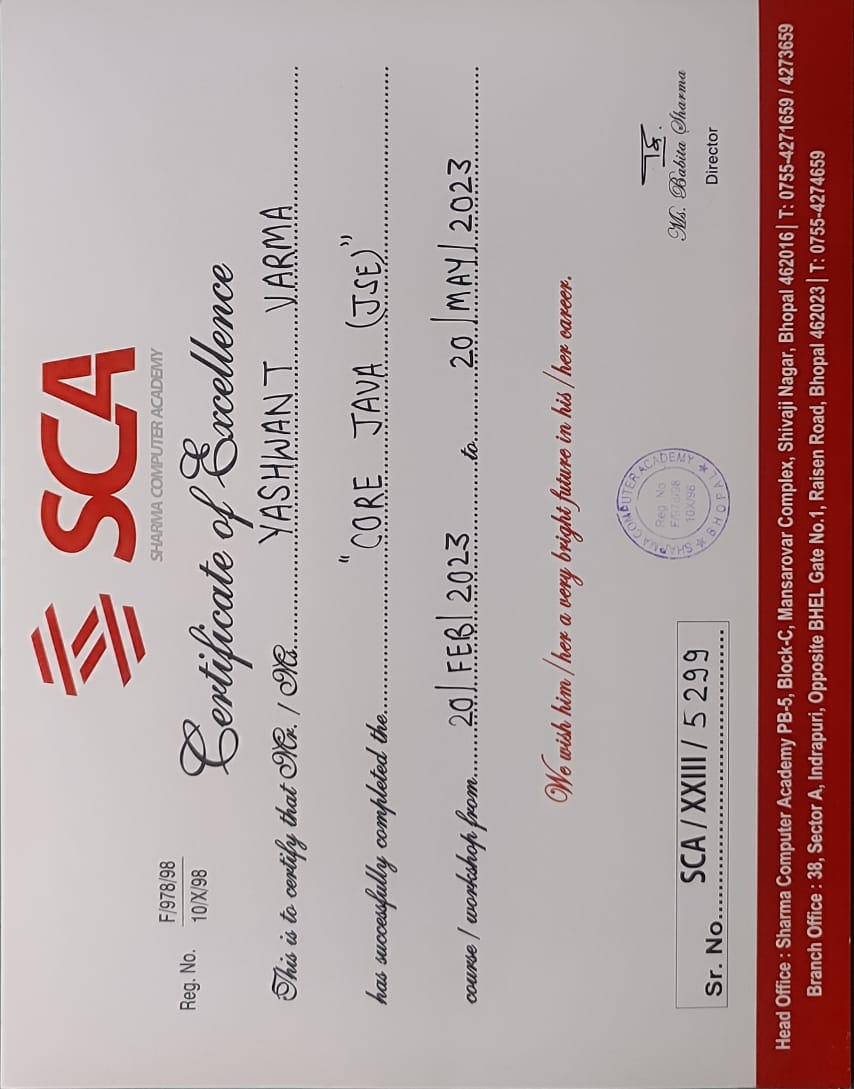 SCA
SHARMA COMPUTER ACADEMY
Reg. No. F/978/98
10/X/98
Certificate of Excellence
This is to certify that Mr. / Ms. YASHWANT VARMA
has successfully completed the "CORE JAVA (JSE)"
course / workshop from 20/FEB/2023 to 20/MAY/2023
We wish him / her a very bright future in his / her career.
SHARMA COMPUTER ACADEMY
Reg. No
F/978/98
10X/98
★ BHOPAL ★
Ms. Babita Sharma
Director
Sr. No. SCA / XXIII / 5299
Head Office : Sharma Computer Academy PB-5, Block-C, Mansarovar Complex, Shivaji Nagar, Bhopal 462016 | T: 0755-4271659 / 4273659
Branch Office : 38, Sector A, Indrapuri, Opposite BHEL Gate No.1, Raisen Road, Bhopal 462023 | T: 0755-4274659